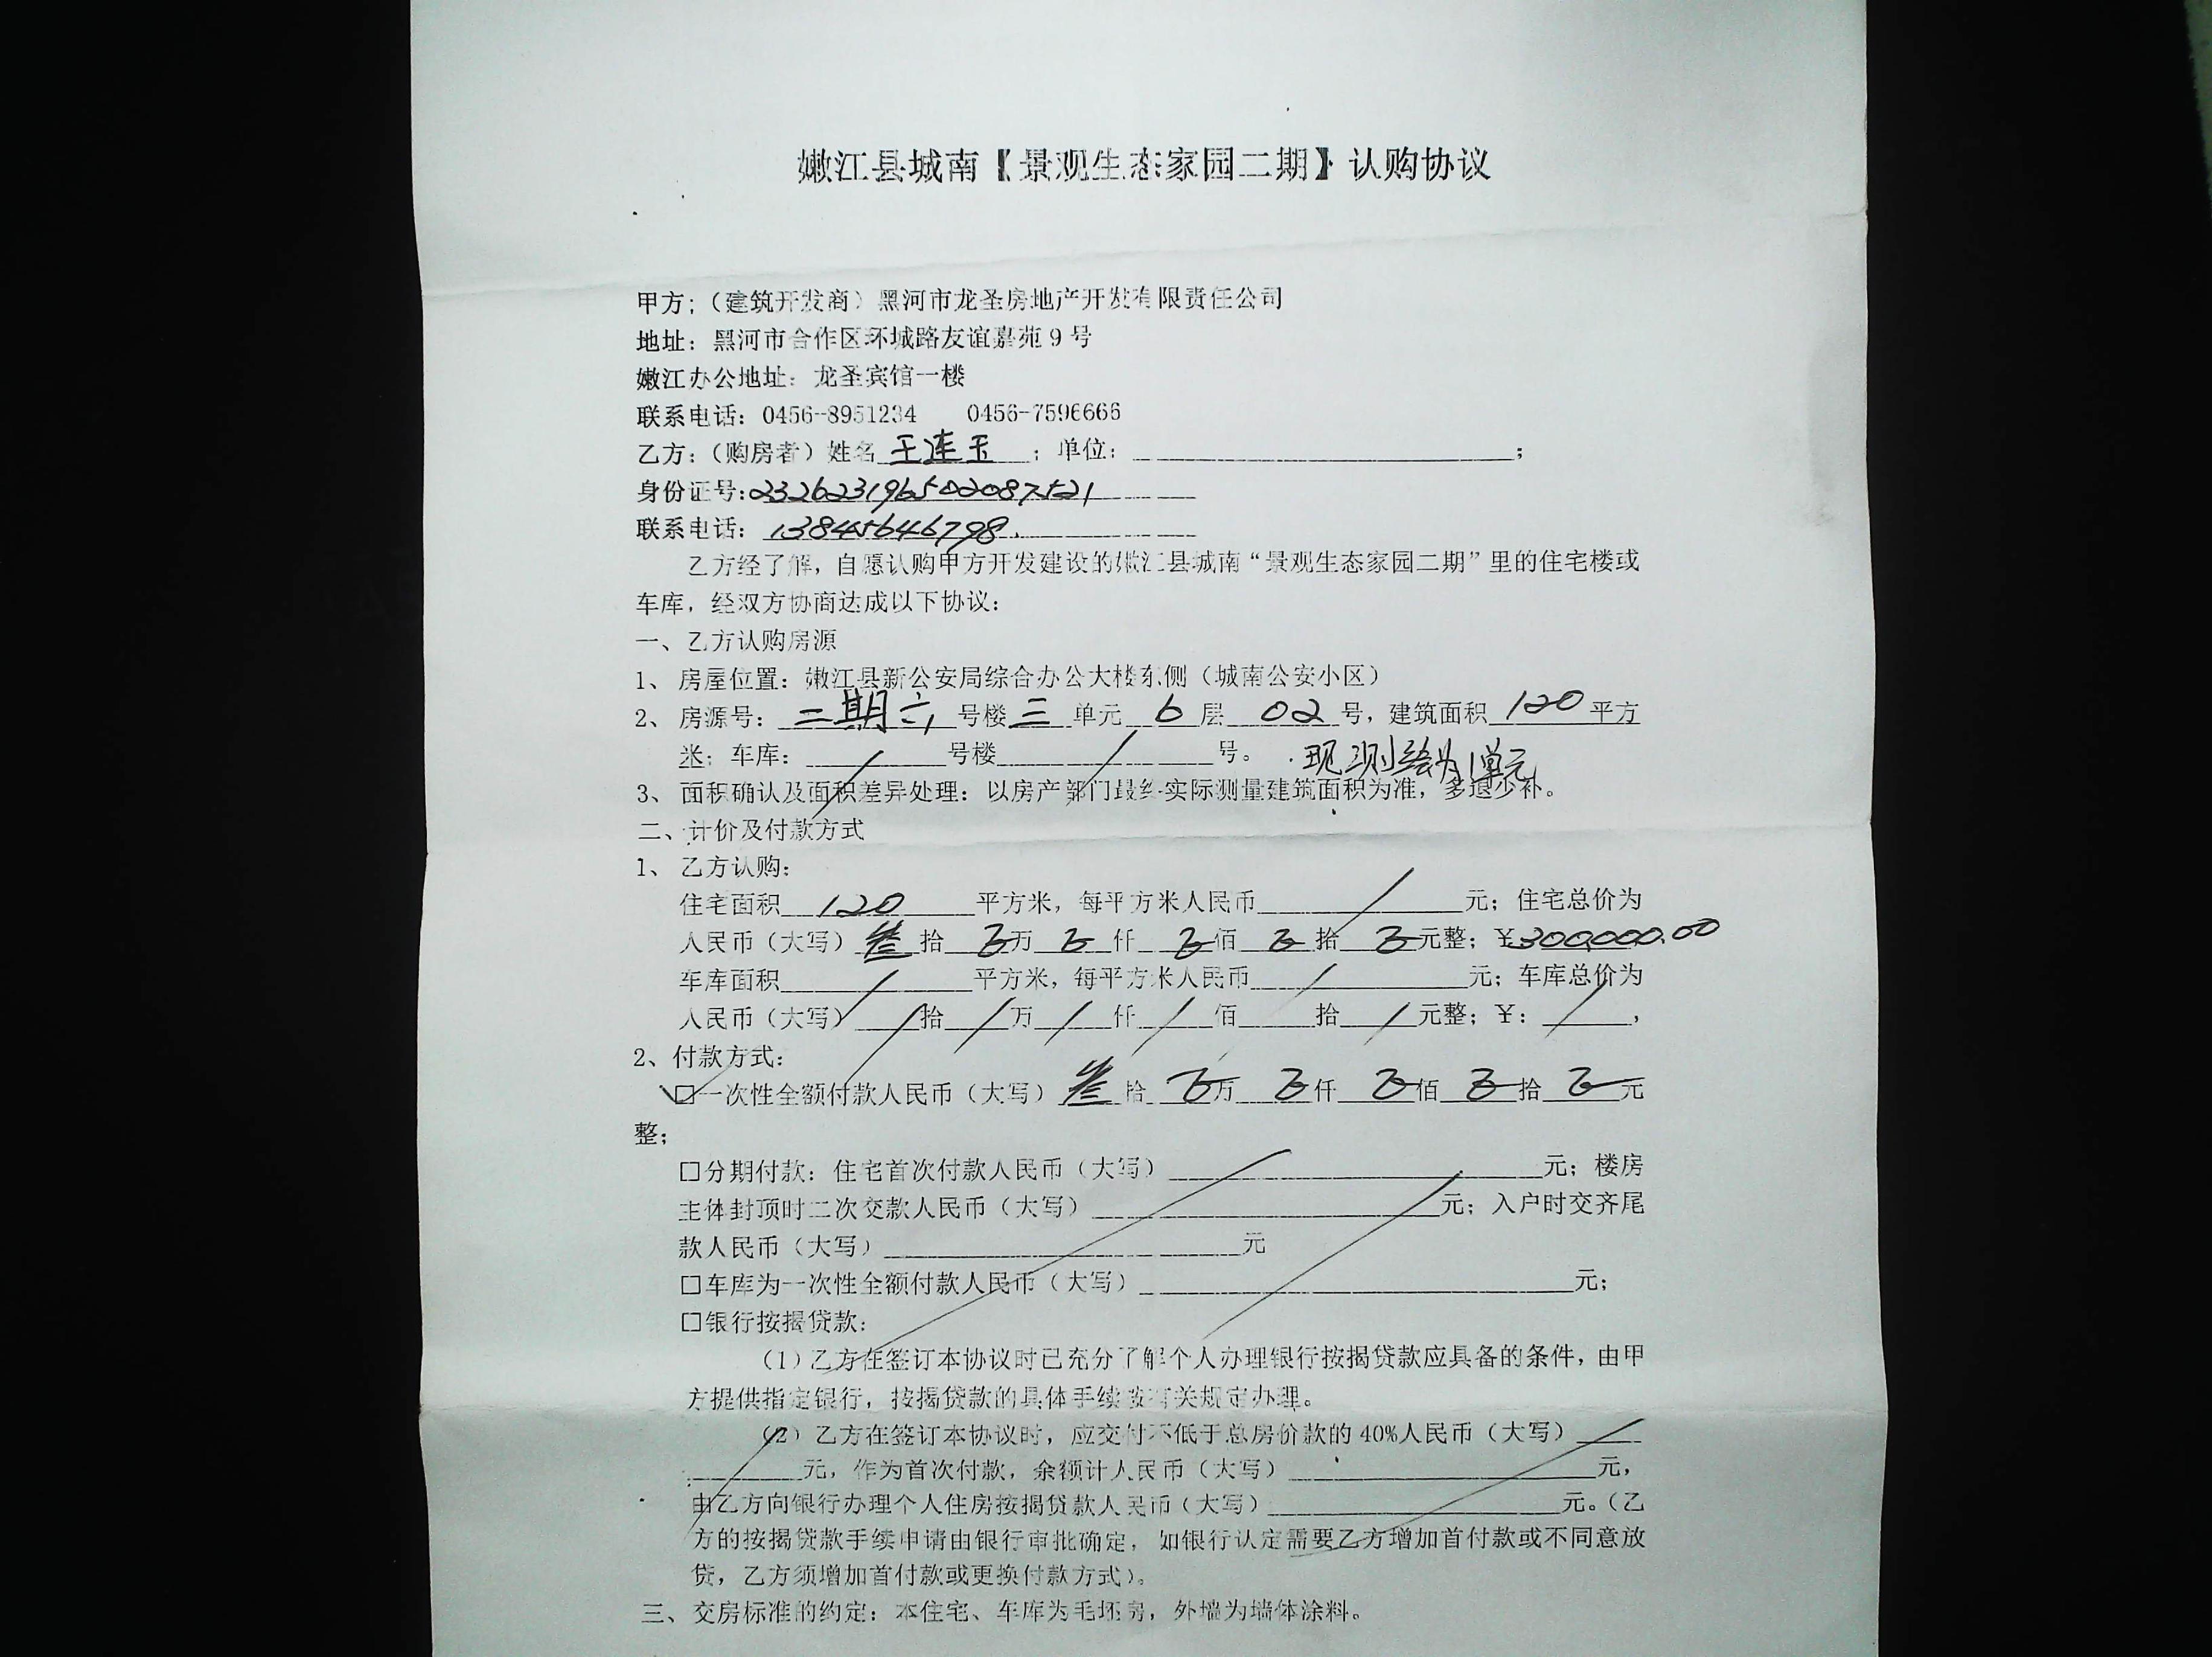 嫩江县城南【景观生态家园二期】认购协议
甲方；（建筑开发商）黑河市龙圣房地产开发有限责任公司
地址：黑河市合作区环城路友谊嘉苑 9 号
嫩江办公地址：龙圣宾馆一楼
联系电话：0456-8951234 0456-7596666
乙方：（购房者）姓名 王连玉 ；单位：；
身份证号：232623196502087521
联系电话：13845646798.
乙方经了解，自愿认购甲方开发建设的嫩江县城南“景观生态家园二期”里的住宅楼或
车库，经双方协商达成以下协议：
一、乙方认购房源
1、房屋位置：嫩江县新公安局综合办公大楼东侧（城南公安小区）
2、房源号：二期六 号楼 三 单元 6 层 02 号，建筑面积 120 平方
米；车库： / 号楼 / 号。 现测绘为1单元
3、面积确认及面积差异处理：以房产部门最终实际测量建筑面积为准，多退少补。
二、计价及付款方式
1、乙方认购：
住宅面积 120 平方米，每平方米人民币 / 元；住宅总价为
人民币（大写）叁 拾 万 仟 佰 拾 元整；￥300000.00
车库面积 / 平方米，每平方米人民币 / 元；车库总价为
人民币（大写） / 拾 / 万 / 仟 / 佰 拾 / 元整；￥： / ，
2、付款方式：
☑一次性全额付款人民币（大写）叁 拾 万 仟 佰 拾 元
整；
□分期付款：住宅首次付款人民币（大写）元；楼房
主体封顶时二次交款人民币（大写）元；入户时交齐尾
款人民币（大写）元
□车库为一次性全额付款人民币（大写）元；
□银行按揭贷款：
（1）乙方在签订本协议时已充分了解个人办理银行按揭贷款应具备的条件，由甲
方提供指定银行，按揭贷款的具体手续按有关规定办理。
（2）乙方在签订本协议时，应交付不低于总房价款的 40%人民币（大写）
元，作为首次付款，余额计人民币（大写）元，
由乙方向银行办理个人住房按揭贷款人民币（大写）元。（乙
方的按揭贷款手续申请由银行审批确定，如银行认定需要乙方增加首付款或不同意放
贷，乙方须增加首付款或更换付款方式）。
三、交房标准的约定：本住宅、车库为毛坯房，外墙为墙体涂料。